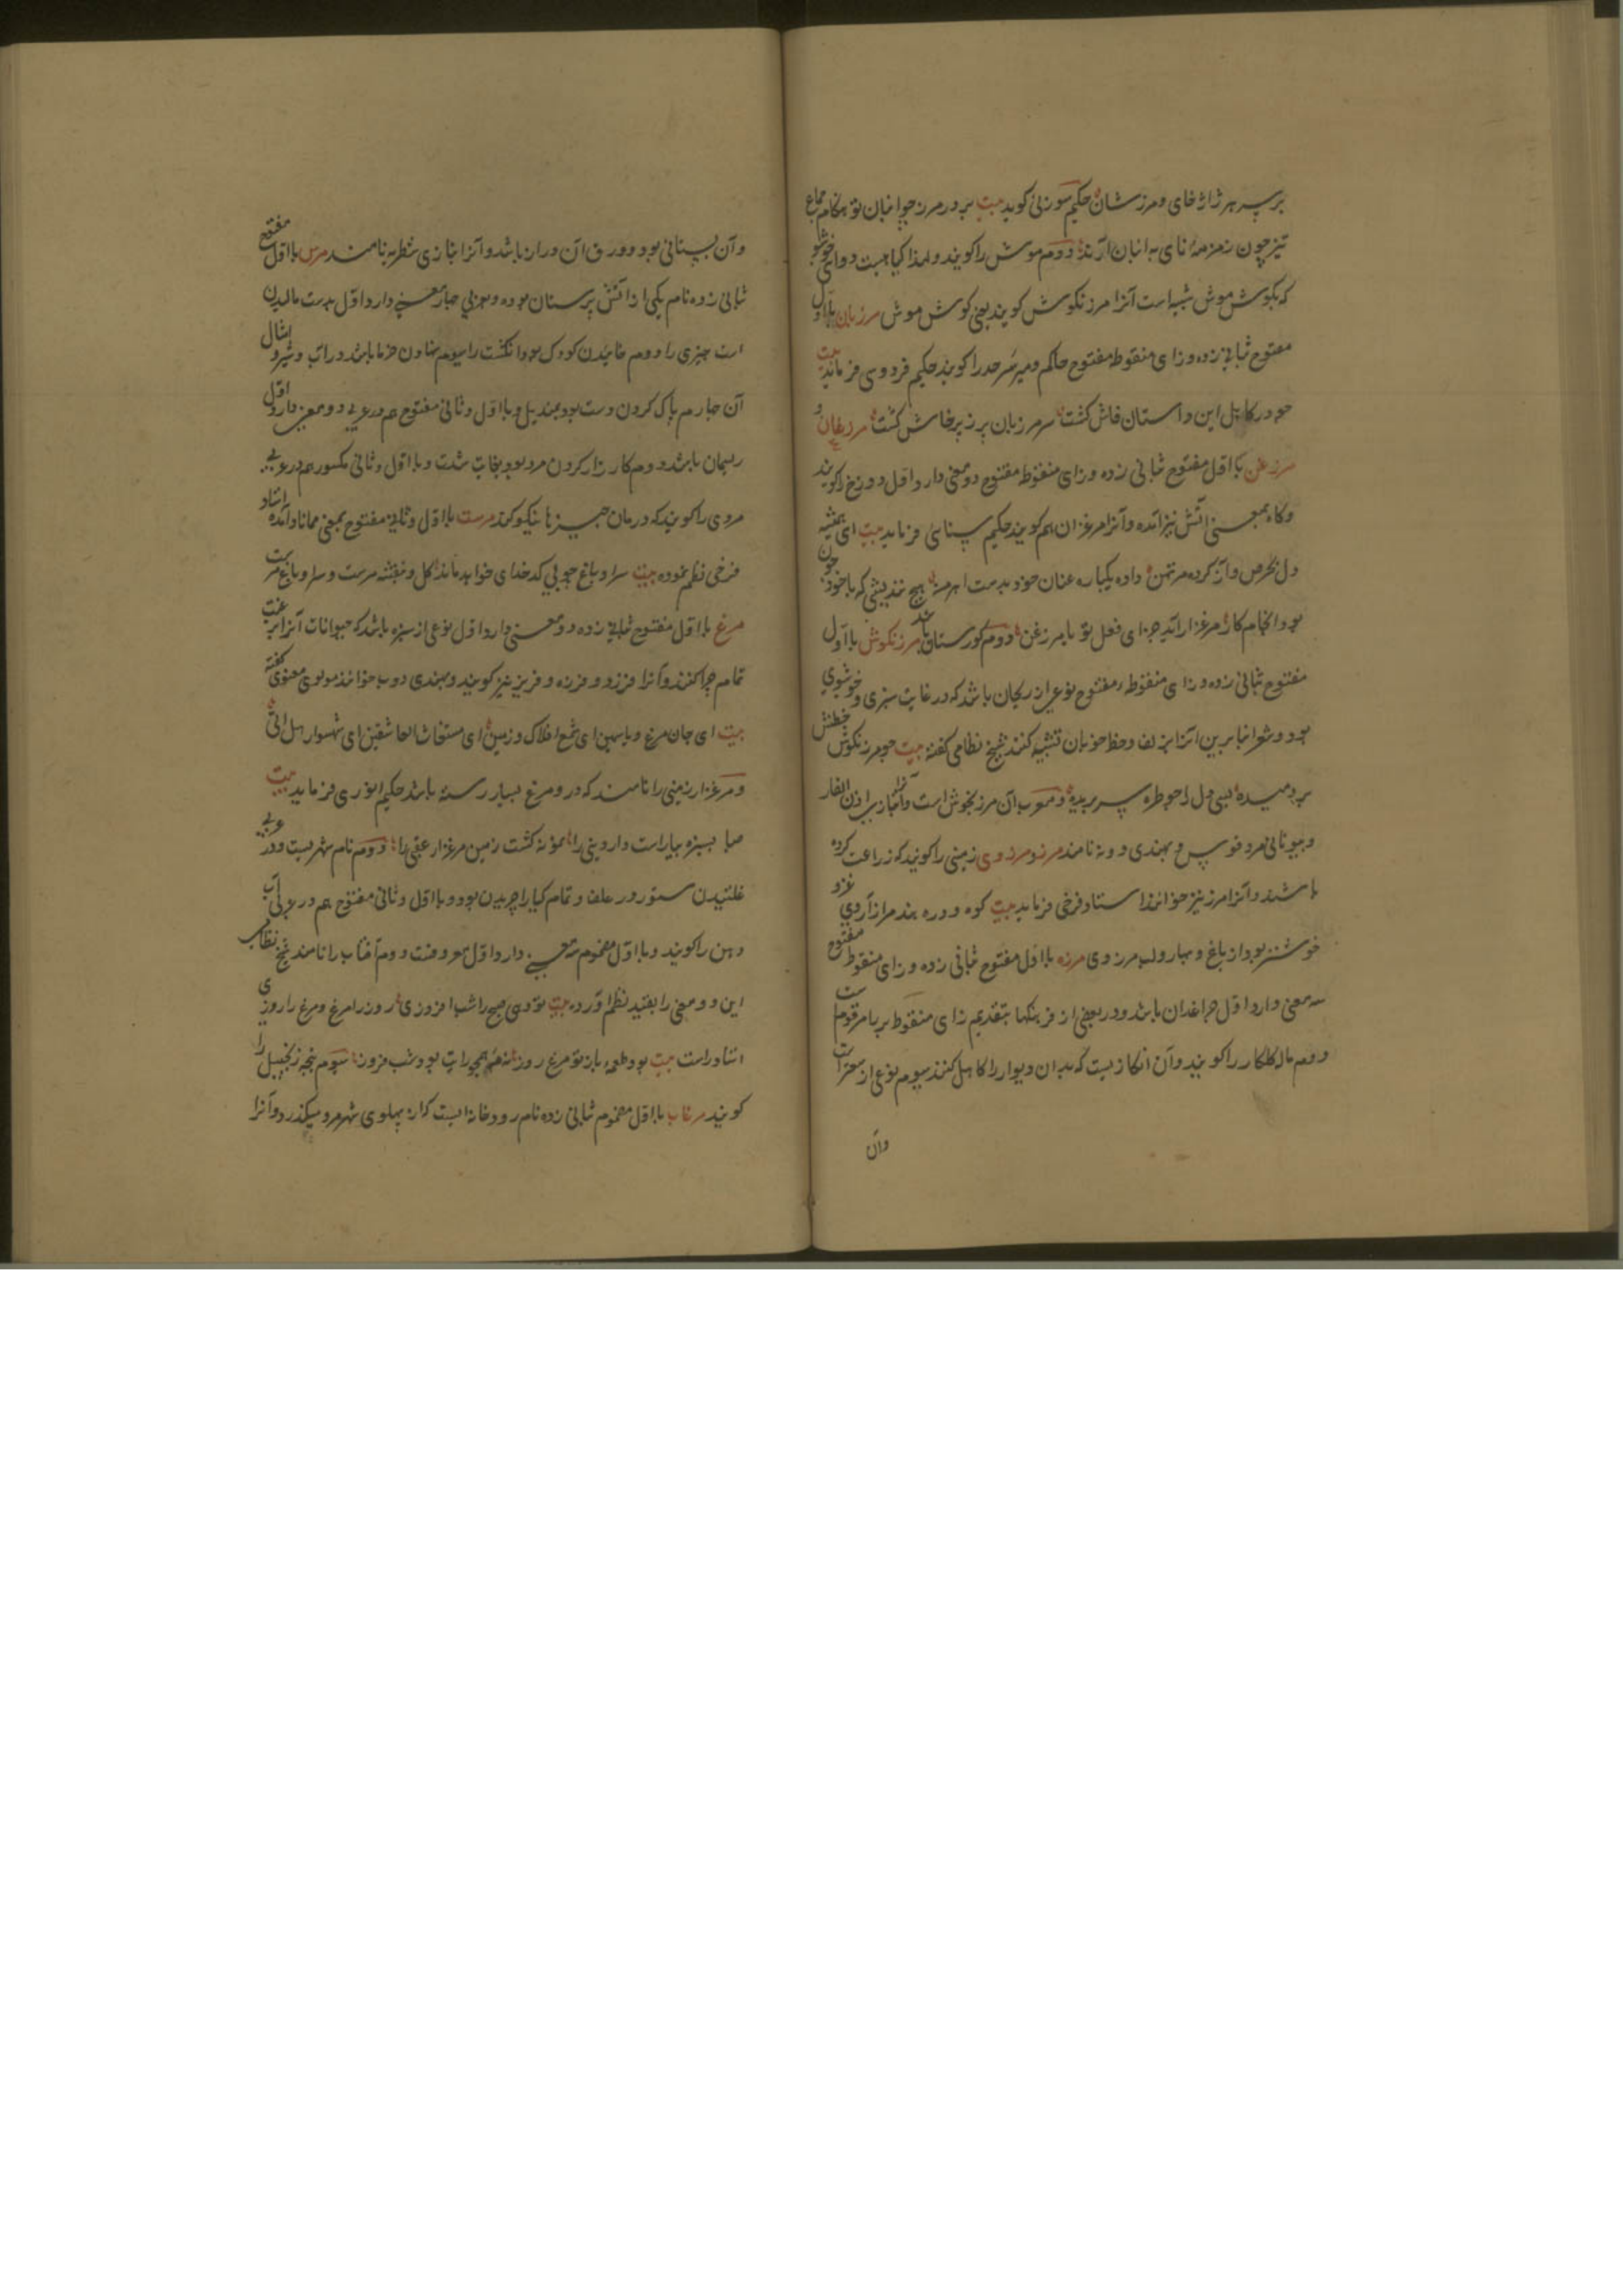 بر سر هر ژاژخای و مرزشان حکیم سوزنی گوید بیت بر در مرز جو انبان تو هنگام جماع
تیز چون زمزمهٔ نای به انبان آرند دوم موش را گویند و لهذا گیاهیست دوای خوشبو
که بگوش موش شبیه است آنرا مرزنگوش گویند یعنی گوش موش مرزبان با اول
مفتوح بثانی زده و زای منقوط مفتوح حاکم و میر سرحد را گویند حکیم فردوسی فرماید بیت
چو در کابل این داستان فاش گشت سر مرزبان پر ز پرخاش گشت مرزغان و
مرزغن با اول مفتوح بثانی زده و زای منقوط مفتوح دو معنی دارد اول دوزخ را گویند
و گاه بمعنی آتش نیز آمده و آنرا مرغزان هم گویند حکیم سنائی فرماید بیت ای همیشه
دل بحرص و آز کرده مرتهن داده یکباره عنان خود بدست اهرمن هیچ نندیشی که با خود چون
بود انجام کار مرغزار آید جزای فعل تو یا مرزغن دوم گورستان باشد مرزنگوش با اول
مفتوح بثانی زده و زای منقوط مفتوح نوعی از ریحان باشد که در غایت سبزی و خوشبوی
بود و شعرا بنابرین آنرا بزلف و خط خوبان تشبیه کنند شیخ نظامی گفته بیت چو مرزنگوش خطش
بر دمیده بسی دل را چو طره سر بریده و معرب آن مرزنجوش است و آنرا بتازی اذن الفار
و بیونانی مردقوس و بهندی دونه نامند مرز و مرزوی زمینی را گویند که زراعت کرده
باشند و آنرا مرز نیز خوانند استاد فرخی فرماید بیت کوه و دره بند مر از آروی غزو
خوشتر بود از باغ و بهار و لب مرزوی مرزه با اول مفتوح ثانی زده و زای منقوط مفتوح
سه معنی دارد اول چراغدان باشد و در بعضی از فرهنگها بتقدیم زای منقوط بر با مرقوم است
دوم ماله گلکار را گویند و آن افزاریست که بدان دیوار را کاهگل کنند سیوم نوعی از سعتر است
وآن
وآن بستانی بود و ورق آن دراز باشد و آنرا بتازی شطریه نامند مرس با اول مفتوح
ثانی زده نام یکی از آتش پرستان بوده و بعربی چهار معنی دارد اول بدست مالیدن
است چیزی را دوم خائیدن کودک بود انگشت را سیوم نهادن خرما باشد در آب و شیر و امثال
آن چهارم پاک کردن دست بود بمندیل و با اول و ثانی مفتوح هم در عربی دو معنی دارد اول
ریسمان باشد دوم کارزار کردن مرد بود بغایت شدت و با اول و ثانی مکسور هم در عربی
مردی را گویند که درمان چیزها نیکو کند مرست با اول و ثانی مفتوح بمعنی مماناد آمده استاد
فرخی نظم نموده بیت سرا و باغ چو بی کدخدای خواهد ماند گل و بنفشه مرست و سرا و باغ مرست
مرغ با اول مفتوح ثانی زده دو معنی دارد اول نوعی از سبزه باشد که حیوانات آنرا برغبت
تمام چرا کنند و آنرا فرزد و فرزه و فریز نیز گویند و بهندی دوب خوانند مولوی معنوی گفته
بیت ای جان مرغ و یاسمین ای شمع افلاک و زمین ای مستغاث العاشقین ای شهسوار هل اتی
و مرغزار زمینی را نامند که درو مرغ بسیار رسته باشد حکیم انوری فرماید بیت
صبا بسبزه بیاراست دار دنیی را نمونه گشت زمین مرغزار عقبی را دوم نام شهریست و در عربی
غلتیدن ستور در علف و تمام گیاه را چریدن بود و با اول و ثانی مفتوح هم در عربی آب
دهن را گویند و با اول مضموم سه معنی دارد اول معروفست دوم آفتاب را نامند شیخ نظامی
این دو معنی را بقید نظم آورده بیت تو دی صبح را شب افروزی روز را مرغ و مرغ را روزی
استاد راست بیت بود طعمه باز تو مرغ روز شب فروز سیوم پنجه زنجبیل را
گویند مرغاب با اول مضموم ثانی زده نام رودخانه ایست که از پهلوی شهر مرو میگذرد و آنرا